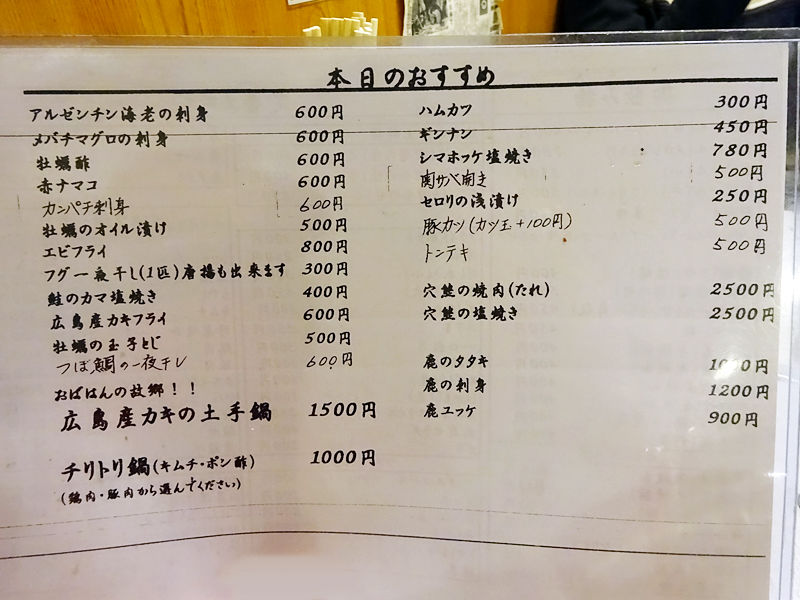 本日のおすすめ
アルゼンチン海老の刺身 600円
メバチマグロの刺身 600円
牡蠣酢 600円
赤ナマコ 600円
カンパチ刺身 600円
牡蠣のオイル漬け 500円
エビフライ 800円
フグ一夜干し(1匹)唐揚も出来ます 300円
鮭のカマ塩焼き 400円
広島産カキフライ 600円
牡蠣の玉子とじ 500円
つぼ鯛の一夜干し 600円
おばはんの故郷!!
広島産カキの土手鍋 1500円
チリトリ鍋(キムチ・ポン酢) 1000円
(鶏肉・豚肉から選んでください)
ハムカツ 300円
ギンナン 450円
シマホッケ塩焼き 780円
関サバ開き 500円
セロリの浅漬け 250円
豚カツ(カツ玉+100円) 500円
トンテキ 500円
穴熊の焼肉(たれ) 2500円
穴熊の塩焼き 2500円
鹿のタタキ
鹿の刺身 1200円
鹿ユッケ 900円